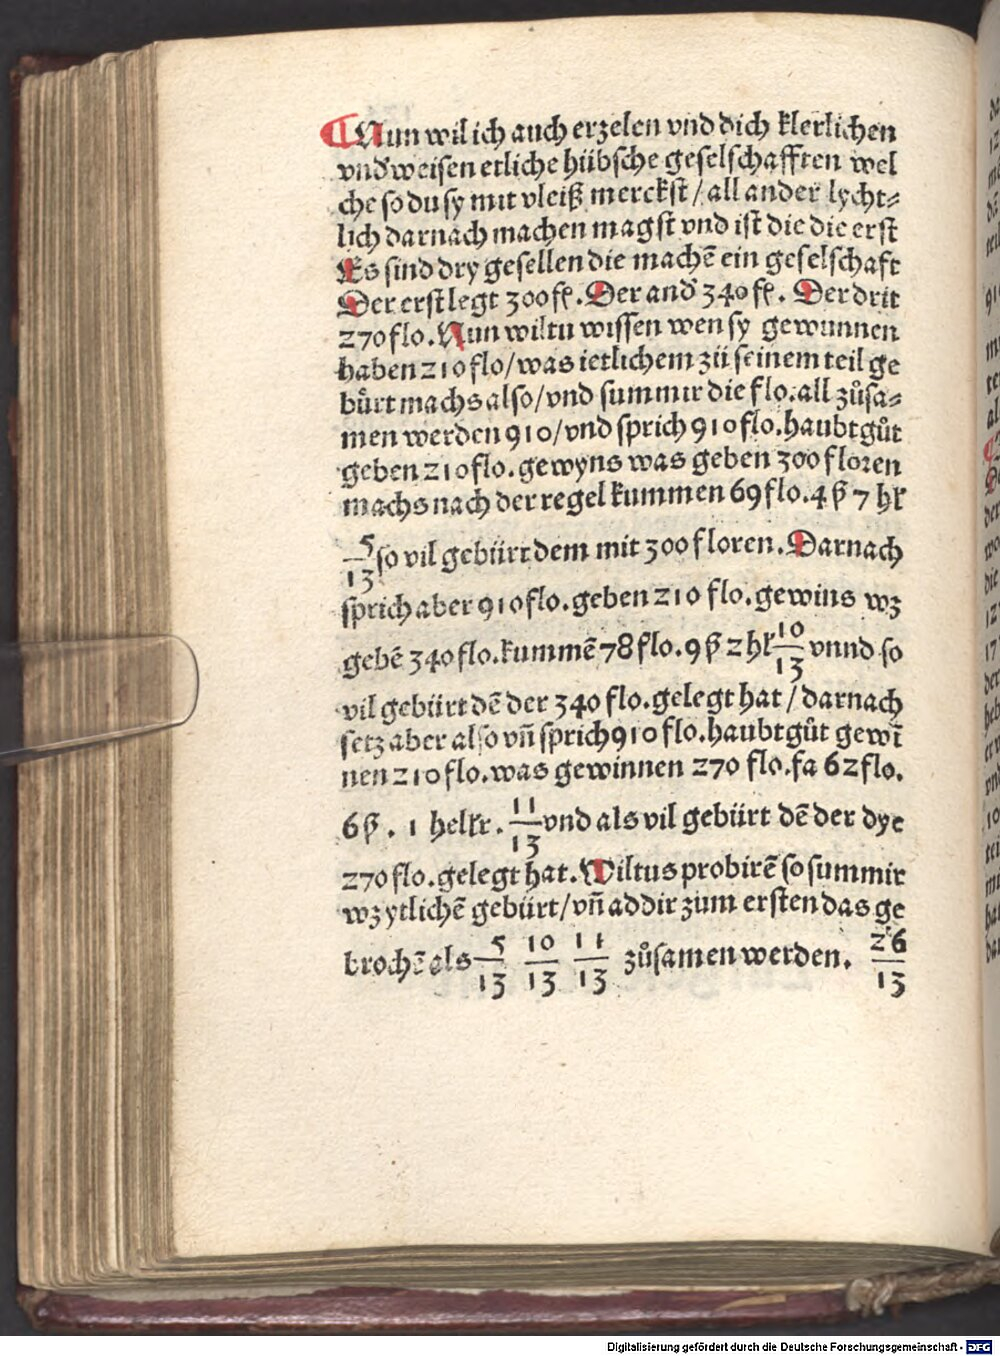 ¶Nun wil ich auch erzelen vnd dich klerlichen
vnd̕weisen etliche hübsche geselschafften wel
che so du sy mit vleiß merckst / all ander lycht⸗
lich darnach machen magst vnd ist die die erst
Es sind dry gesellen die machē ein geselschaft
Der erst legt 300 fl̕. Der and̕ 340 fl̕. Der drit
270 flo. Nun wiltu wissen wen sy gewunnen
haben 210 flo/was ietlichem zů seinem teil ge
bůrt machs also/vnd summir die flo. all zůsa⸗
men werden 910/vnd sprich 910 flo. haubtgůt
geben 210 flo. gewyns was geben 300 floren
machs nach der regel kummen 69 flo. 4 ß 7 hl̕
5/13 so vil gebürt dem mit 300 floren. Darnach
sprich aber 910 flo. geben 210 flo. gewins wz
gebē 340 flo. kummē 78 flo. 9 ß 2 hl̕ 10/13 vnnd so
vil gebürt dē der 340 flo. gelegt hat / darnach
setz aber also vñ sprich 910 flo. haubtgůt gewī
nen 210 flo. was gewinnen 270 flo. fa 62 flo.
6 ß . 1 hellr. 11/13 vnd als vil gebürt dē der dye
270 flo. gelegt hat. Wiltus probirē so summir
wz ytlichē gebürt/vñ addir zum ersten das ge
brochē als 5/13 10/13 11/13 zůsamen werden. 26/13
Digitalisierung gefördert durch die Deutsche Forschungsgemeinschaft - DFG